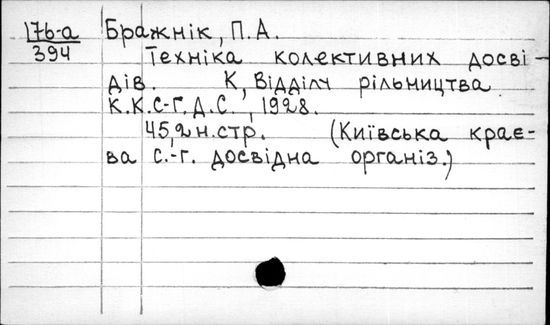 176-а
394
Бражнік, П.А.
Техніка колективних досві-
дів. К, Відділч рільництва
К.К.С-Г.Д.С., 1928.
45,2н.стр. (Київська крає-
ва с.-г. досвідна організ.)